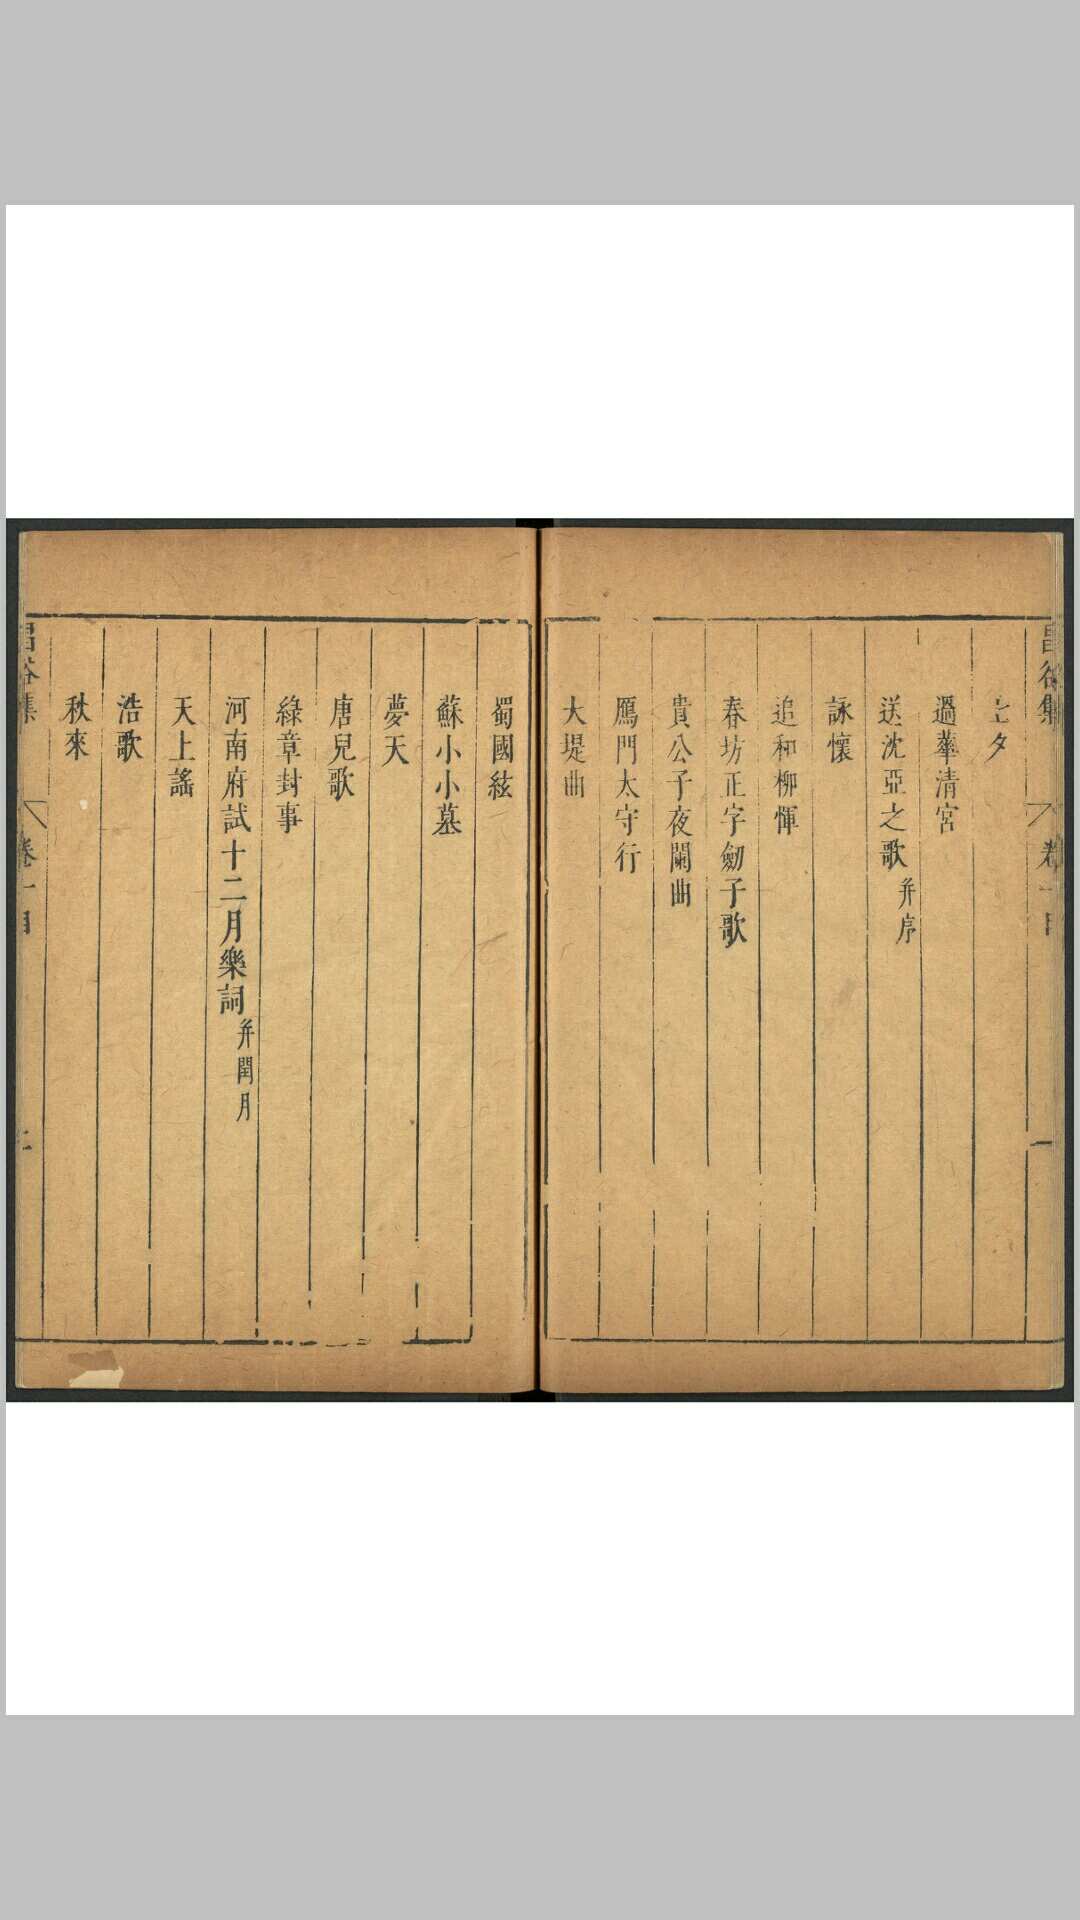 昌谷集 卷一目 一
七夕
過華清宮
送沈亞之歌 并序
詠懷
追和柳惲
春坊正字劒子歌
貴公子夜闌曲
鴈門太守行
大堤曲
蜀國絃
蘇小小墓
夢天
唐兒歌
綠章封事
河南府試十二月樂詞 并閏月
天上謠
浩歌
秋來
昌谷集 卷一目